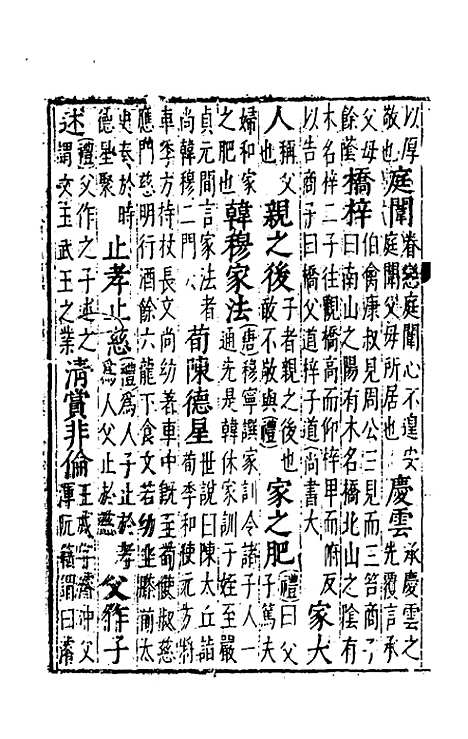 以厚敬也庭闈眷戀庭闈心不遑安庭闈父毋所居也慶雲承慶雲之先覆言承
父母餘蔭橋梓伯禽康叔見周公三見而三笞商子曰南山之陽有木名橋北山之陰有
木名梓二子往觀橋高而仰梓卑而俯反以告商子曰橋父道梓子道(尚書大家大
人稱父也親之後子者親之後也敢不敬與(禮)家之肥(禮)曰父子篤夫
婦和家之肥也韓穆家法(唐)穆寧譔家訓令諸子人一通先是韓休家訓子姪至嚴
貞元間言家法者尚韓穆二門荀陳德星世說曰陳太丘詣荀季和使元方將
車季方持杖長文尚幼著車中旣至荀使叔慈應門慈明行酒餘六龍下食文若幼坐膝前太
史奏於時德星聚止孝止慈(禮)爲人子止於孝爲人父止於慈父作子
述(禮)父作之子述之謂文王武王之業清賞非倫王戎字濬冲父渾阮籍謂曰濬